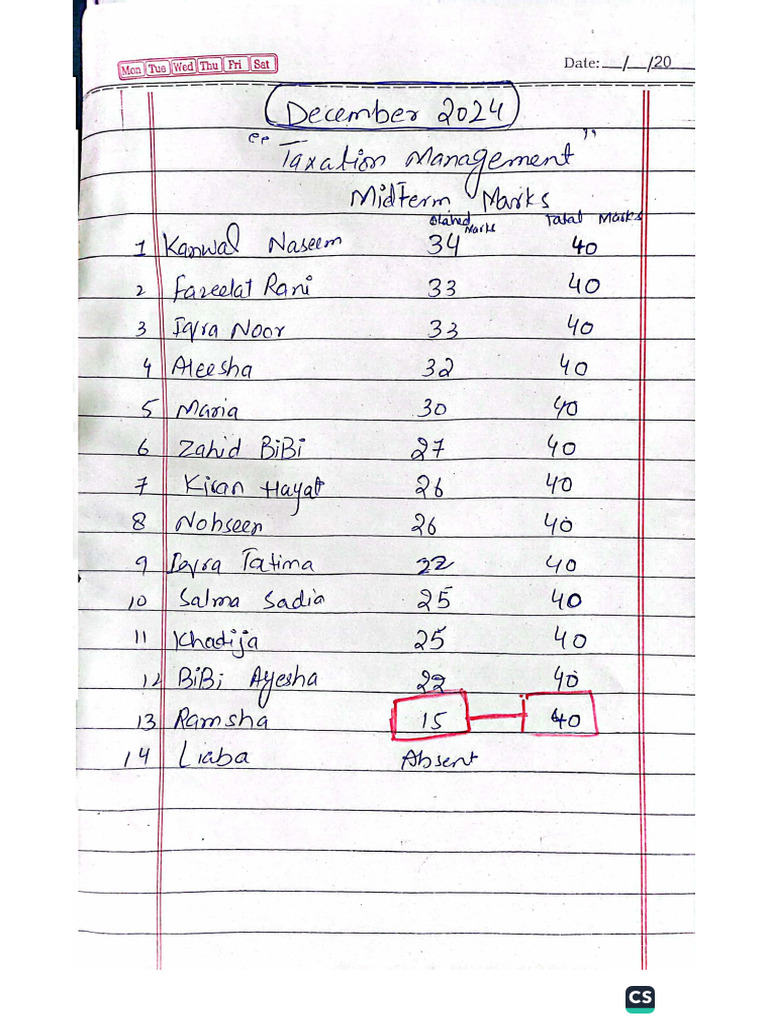 Mon Tue Wed Thu Fri Sat Date: __/__/20__
December 2024
"Taxation Management"
Midterm Marks
Marks Total Marks
1 Kanwal Naseem 34 40
2 Fazeelat Rani 33 40
3 Iqra Noor 33 40
4 Aleesha 32 40
5 Maria 30 40
6 Zahid BiBi 27 40
7 Kiran Hayat 26 40
8 Nohseen 26 40
9 Iqra Fatima 22 40
10 Salma Sadia 25 40
11 Khadija 25 40
12 BiBi Ayesha 22 40
13 Ramsha 15 40
14 Liaba Absent
CS